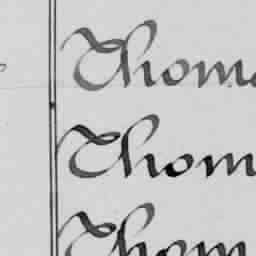 Thoma
Thom
Thom